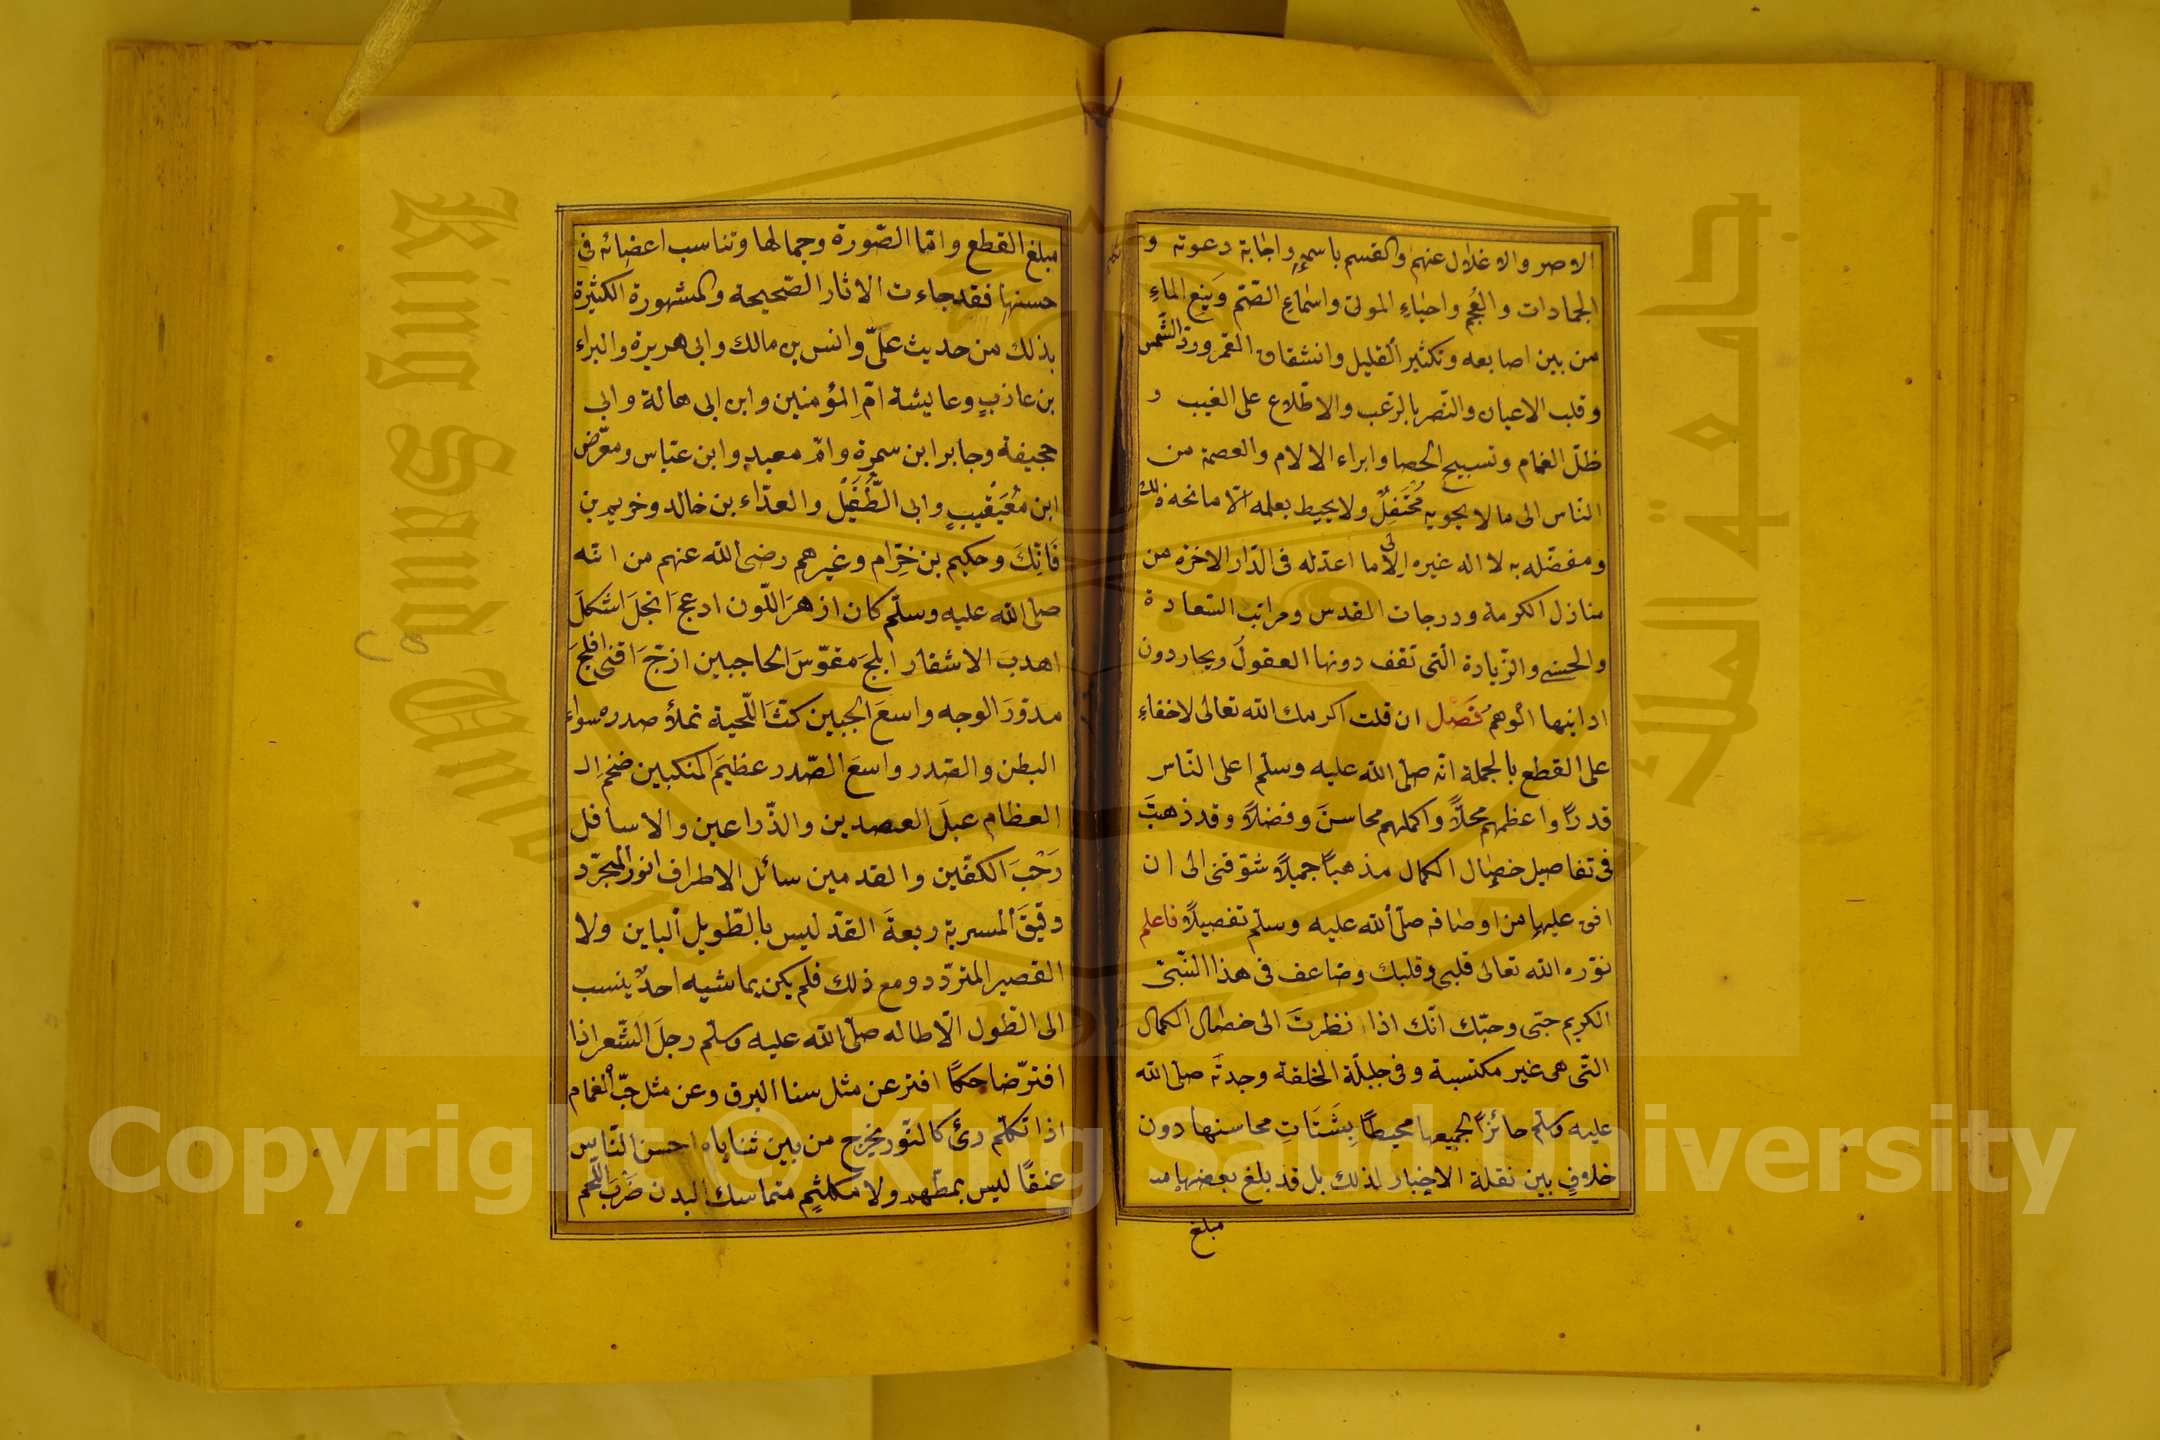 الاصر والاغلال عنهم والقسم باسمه واجابة دعوته و
الجمادات والعجم واحياء الموتى واسماع الصّم ونبع الماء
من بين اصابعه وتكثير القليل وانشقاق القمر وردّ الشمس
وقلب الاعيان والنصر بالرعب والاطلاع على الغيب و
ظلّ الغمام وتسبيح الحصا وابراء الالام والعصمة من
الناس الى ما لا يحويه محتفل ولا يحيط بعلمه الّا مانحه ذلك
ومفضّله به لا اله غيره الى ما اعدّ له فى الدّار الاخرة من
منازل الكرمة ودرجات القدس ومراتب السّعادة
والحسنى والزّيادة الّتى تقف دونها العقول ويحار دون
ادانيها الوهم فَصْل ان قلت اكرمك الله تعالى لاخفاء
على القطع بالجملة انّه صلّى الله عليه وسلّم اعلى النّاس
قدرًا واعظمهم محلاًّ واكملهم محاسنَ وفضلاً وقد ذهبتَ
فى تفاصيل خصال الكمال مذهبًا جميلاً شوّقنى الى ان
اقف عليها من اوصافه صلّى الله عليه وسلّم تفصيلاً فاعلم
نوّره الله تعالى قلبى وقلبك وضاعف فى هذا النّبىّ
الكريم حبّى وحبّك انّك اذا نظرتَ الى خصال الكمال
التّى هى غير مكتسبة وفى جبلّة الخلقة وجدتَه صلّى الله
عليه وسلّم حائزًا لجميعها محيطًا بِشَتَاتِ محاسنها دون
خلافٍ بين نقلة الاخبار لذلك بل قد بلغ بعضها
مبلغ
مبلغ القطع وامّا الصّورة وجمالها وتناسب اعضائه فى
حسنها فقد جاءت الاثار الصّحيحة والمشهورة الكثيرة
بذلك من حديث علىّ وانس بن مالك وابى هريرة والبراء
بن عازبٍ وعايشة امّ المؤمنين وابن ابى هالة وابى
جحيفة وجابر ابن سمرة وامّ معبد وابن عبّاس ومعرّض
ابن مُعَيْقِيبٍ وابى الطُّفَيْل والعدّاء بن خالد وخريم بن
فَاتِكَ وحكيم بن حِزَام وغيرهم رضى الله عنهم من انّه
صلى الله عليه وسلّم كان ازهرَ اللّون ادعجَ انجلَ اشكلَ
اهدبَ الاشفار ابلجَ مقوّسَ الحاجبين ازجّ اقنى افلجَ
مدوّرَ الوجه واسعَ الجبين كثَّ اللّحية تملأ صدره سواء
البطن والصّدر واسعَ الصّدر عظيمَ المنكبين ضخم الـ
العظام عبلَ العضدين والذّراعين والاسافل
رَحْبَ الكفّين والقدمين سائل الاطراف انور المتجرّد
دقيقَ المسربة ربعةَ القدّ ليس بالطّويل الباين ولا
القصير المتردّد ومع ذلك فلم يكن يماشيه احدٌ ينسب
الى الطّول الّا طاله صلّى الله عليه وسلّم رجلَ الشّعر اذا
افترّ ضاحكًا افتر عن مثل سنا البرق وعن مثل حبّ الغمام
اذا تكلّم رئ كالنّور يخرج من بين ثناياه احسن النّاس
عنقًا ليس بمطّهم ولا مكلثم متماسك البدن ضَرْبَ اللّحم
King Saud University
جامعة الملك
Copyright © King Saud University